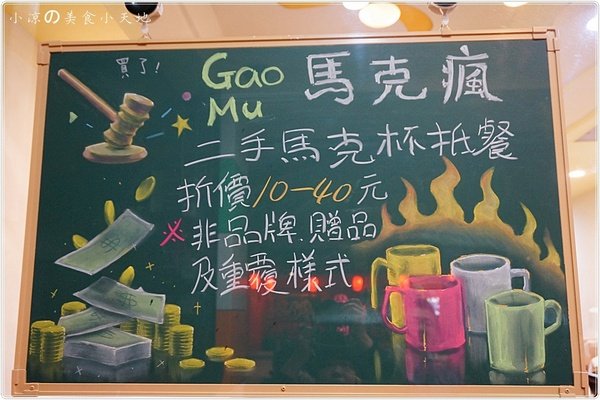 小涼の美食小天地
買了!
Gao Mu 馬克瘋
二手馬克杯抵餐
折價10-40元
※非品牌.贈品
及重覆樣式